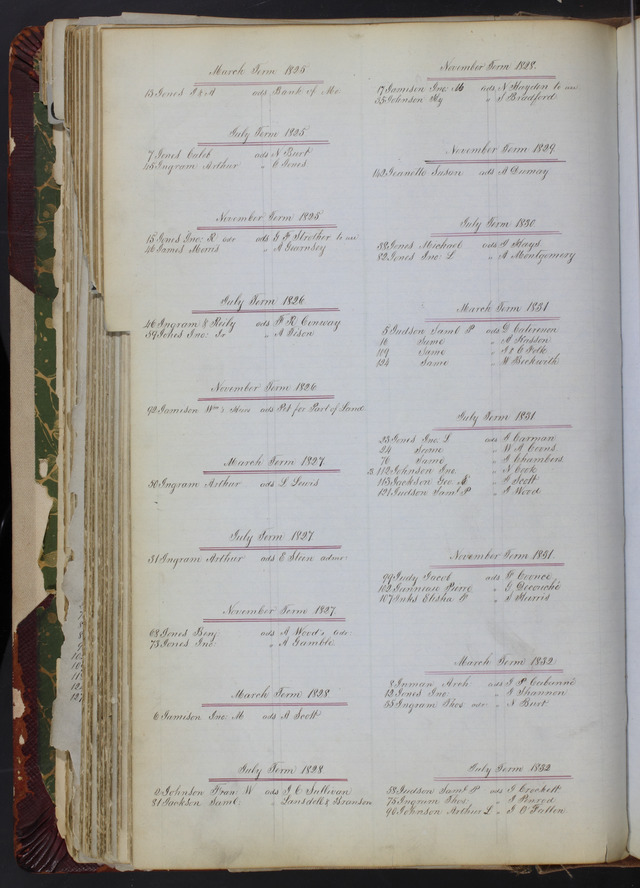 March Term 1825
13 Jones J & A ads Bank of Mo.
July Term 1825
7 Jones Caleb ads N Burt
45 Ingram Arthur " C Jones
November Term 1825
15 Jones Jno. R ads E F Strother to use
46 James Morris " A Guernsey
July Term 1826
46 Ingram & Reily ads F R Conway
59 Jones Jno. Sr " A Tison
November Term 1826
92 Jamison Wm's Heirs ads Pet for Part of Land
March Term 1827
30 Ingram Arthur ads L Lewis
July Term 1827
31 Ingram Arthur ads E Steen admr
November Term 1827
68 Jones Benj. ads A Wood's
73 Jones Jno. " A Gamble
March Term 1828
6 Jamison Jno. M ads A Scott
July Term 1828
2 Johnson Fran W ads J C Sullivan
81 Jackson Saml. " Lansdell & Branson
November Term 1828
17 Jamison Jno. M ads N Hayden to use
35 Johnson Hy " J Bradford
November Term 1829
142 Jeanette Susan ads A Dumay
July Term 1830
38 Jones Michael ads J Hays
82 Jones Jno. L " A Montgomery
March Term 1831
5 Judson Saml P ads G
16 Same " A Kasson
119 Same " J & C Folk
134 Same " M Beckwith
July Term 1831
23 Jones Jno. L ads G Carman
24 Same " W A Coons
76 Same " J Chambers
112 Johnson Jno. " N Cook
115 Jackson Geo. " J Scott
121 Judson Saml P " J Wood
November Term 1831
99 Judy Jacob ads P Coonce
102 Pierre " G
107 Inks Elisha P " A Morris
March Term 1832
8 Inman Arch ads J P Cabanné
12 Jones Jno. " G Shannon
55 Ingram Thos " N Burt
July Term 1832
58 Judson Saml P ads G Crockett
75 Ingram Thos " J Penrod
90 Johnson Arthur L " J O'Fallon